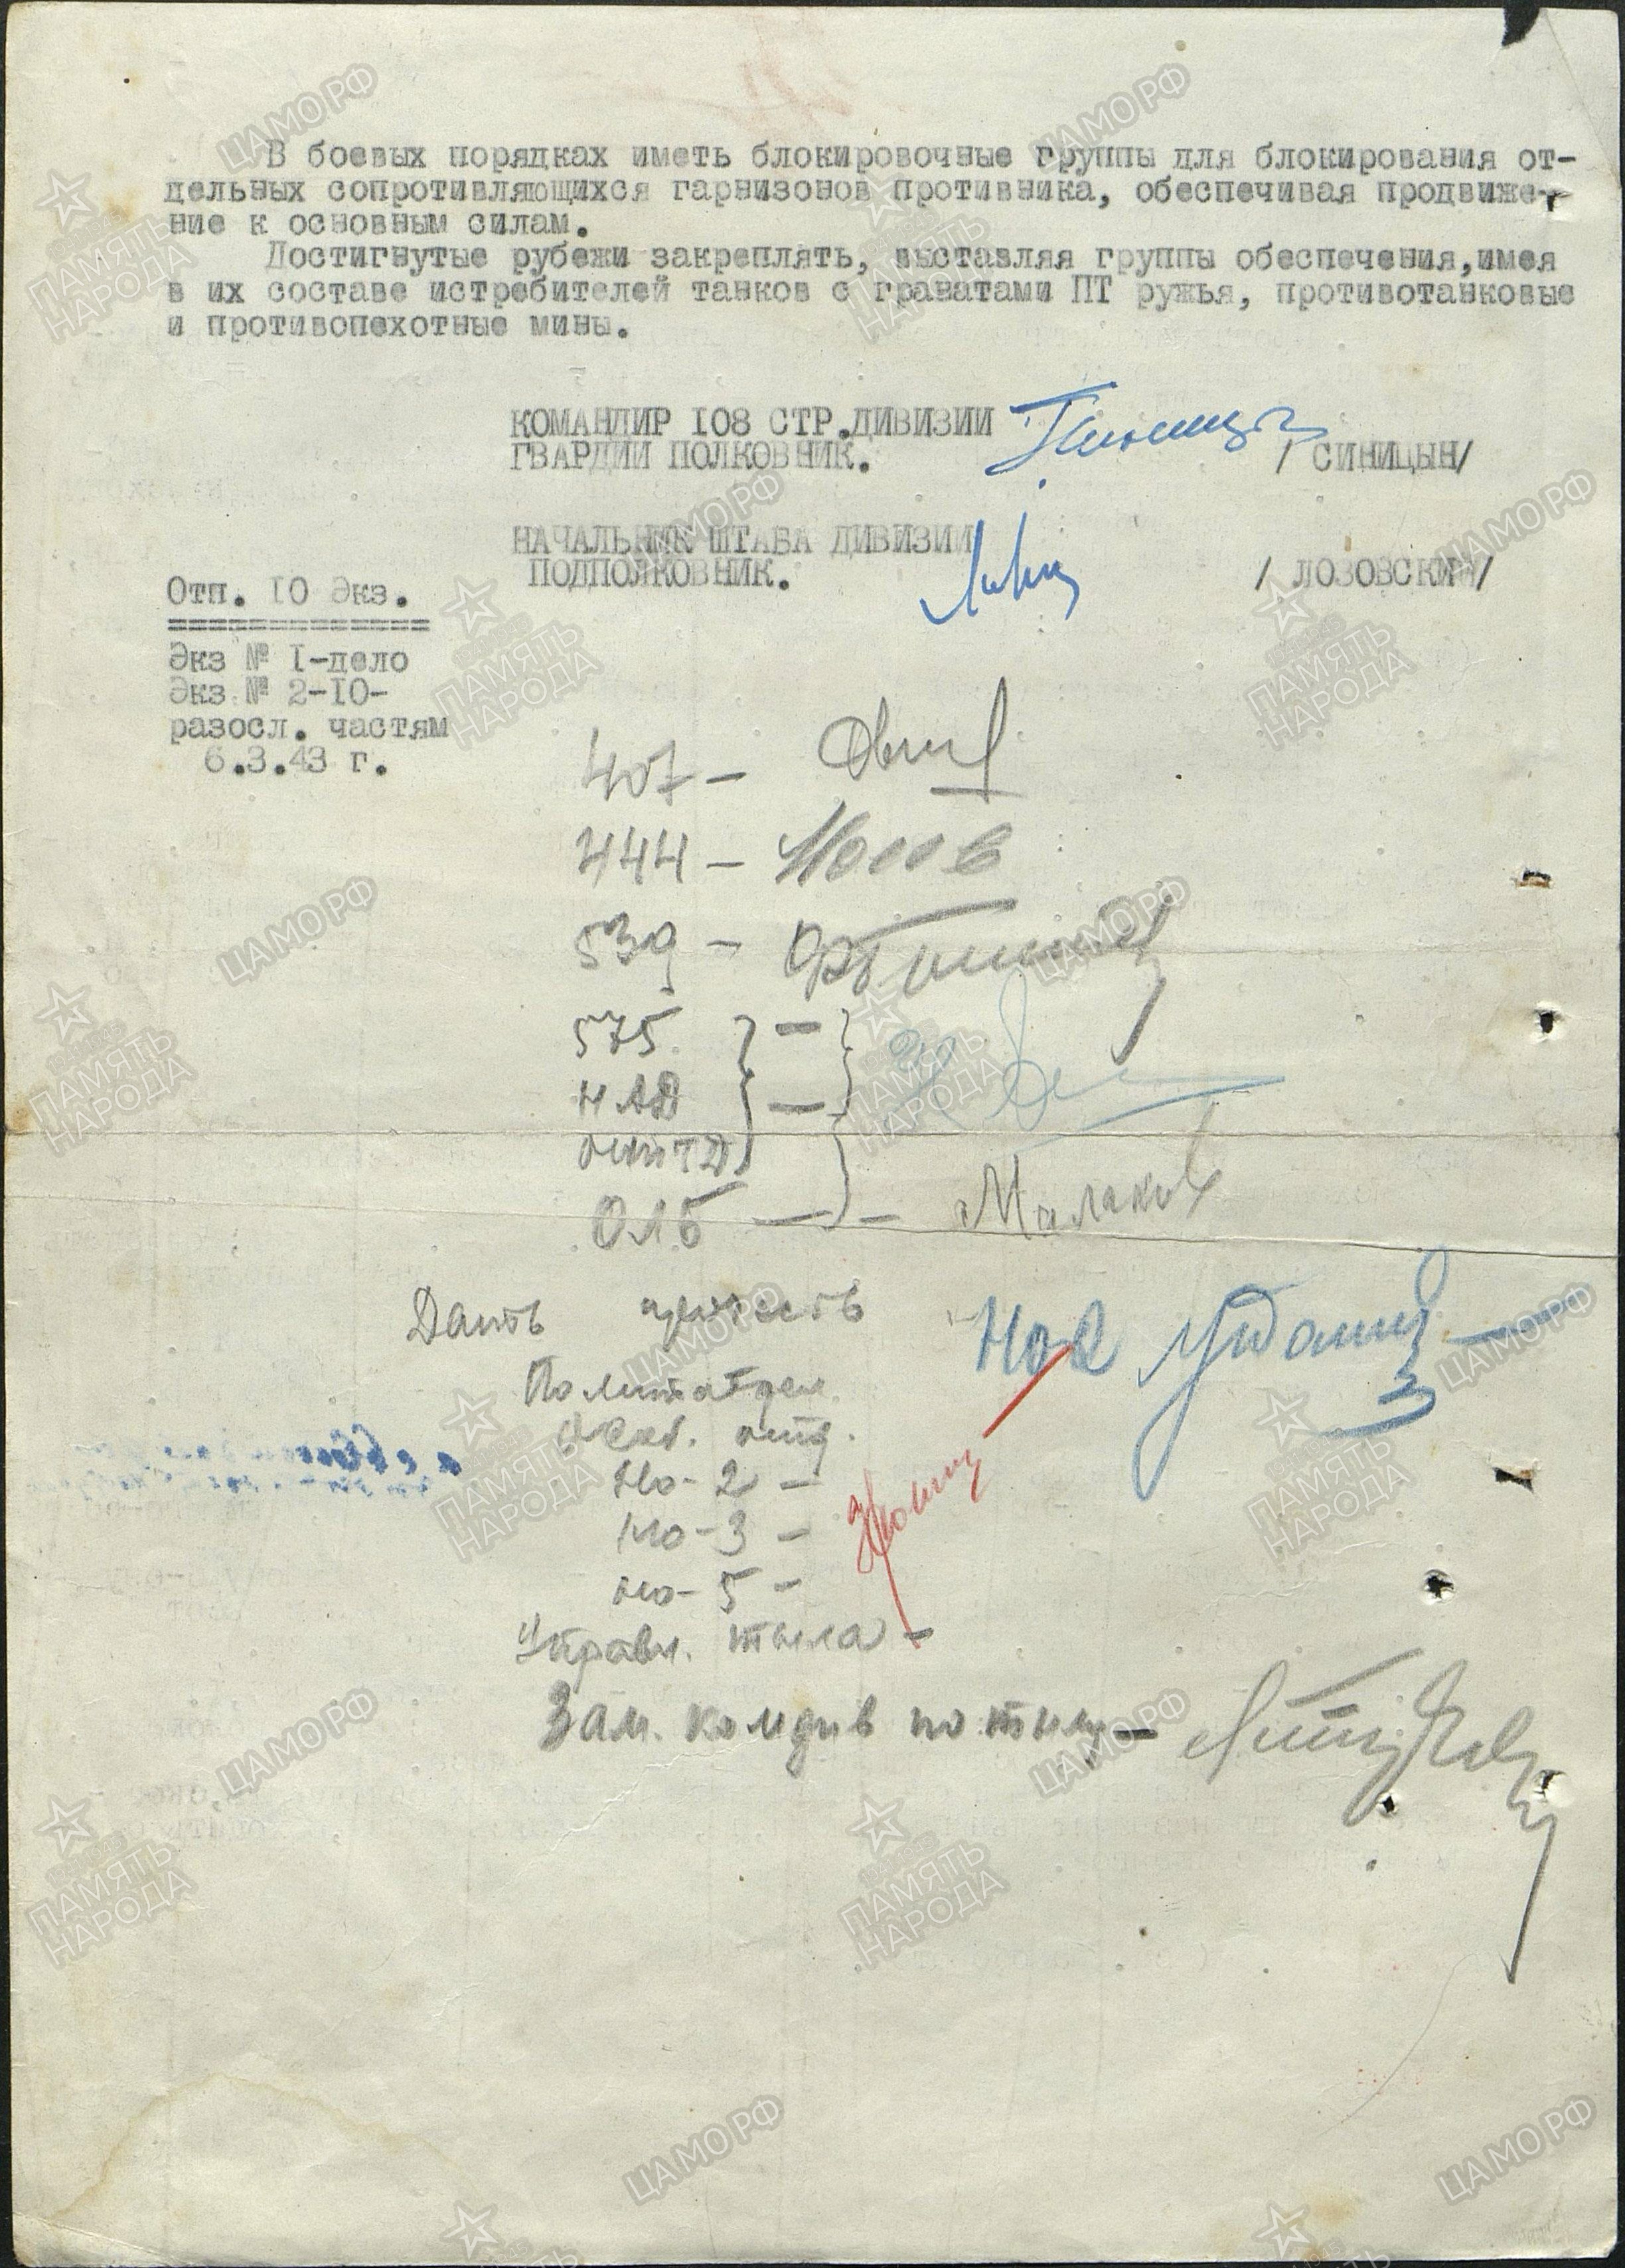 В боевых порядках иметь блокировочные группы для блокирования от-
дельных сопротивляющихся гарнизонов противника, обеспечивая продвиже-
ние к основным силам.
Достигнутые рубежи закреплять, выставляя группы обеспечения,имея
в их составе истребителей танков с гранатами ПТ ружья, противотанковые
и противопехотные мины.
КОМАНДИР 108 СТР.ДИВИЗИИ
ГВАРДИИ ПОЛКОВНИК. / СИНИЦЫН/
НАЧАЛЬНИК ШТАБА ДИВИЗИИ
ПОДПОЛКОВНИК. / ЛОЗОВСКИЙ/
Отп. 10 Экз.
Экз № I-дело
Экз № 2-10-
разосл. частям
6.3.43 г.
407 –
444 –
539 –
575
НАД
ОЛБ –
Дать прочесть
Политотдел
Развед. отд.
но-2 –
но-3 –
но-5 –
Управл. тыла –
Зам. комдив по тылу –